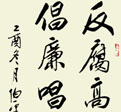 反腐高
倡廉唱
乙酉冬月伯